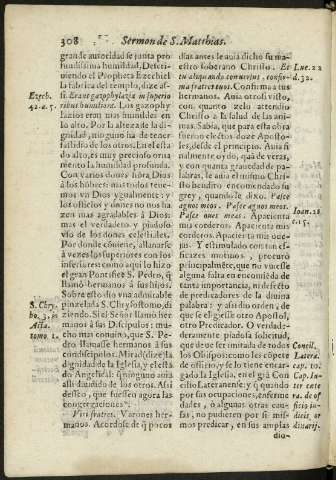 308
Sermon de S. Matthias.
grande autoridad se junta pro-
fundissima humildad. Descri-
uiendo el Propheta Ezechiel
la fabrica del templo, dize as-
si. Erant gazophylazia in superio
ribus humiliora. Los gazophy
lazios eran mas humildes en
lo alto. Por la alteza de la di-
gnidad, ninguno ha de tener
fastidio de los otros. En el esta
do alto, es muy precioso orna
mento la humildad profunda.
Con varios dones hōra Dios
à los hōbres: mas todos tene-
mos vn Dios ygualmente: y
los officios y dones no nos ha
zen mas agradables à Dios:
mas el verdadero y piadoso
vso de los dones celestiales.
Por donde cōuiene, allanarse
à vezes los superiores con los
inferiores: como aqui lo hizo
el gran Pontifice S. Pedro, q̃
llamò hermanos à sus hijos.
Sobre estribo vna admirable
pinzelada S. Chrysostomo, di
ziendo. Si el Señor llamò her
manos à sus Dicipulos: mu-
cho mas conuino, que S. Pe-
dro llamasse hermanos à sus
condiscipulos. Mirad (dize) la
dignidad de la Iglesia, y el esta
do Angelical: q̃ ninguno auia
alli diuidido de los otros. Assi
desseo, que fuessen agora las
congregaciones.
Viri fratres. Varones her-
manos. Acordose de q̃ pocos
Ezech.
42. a. 5.
S. Chry.
ho. 3. in
Acta.
tomo 1.
dias antes le auia dicho su ma-
estro soberano Christo. Et
tu aliquando conuersus, confir-
ma fratres tuos. Confirma a tus
hermanos. Auia otrosi visto,
con quanto zelo attendio
Christo a la salud de las ani-
mas. Sabia, que para esta obra
fueron electos doze Aposto-
les, desde el principio. Auia fi
nalmente oydo, quã de veras,
y con quanta grauedad de pa-
labras, le auia el mismo Chri-
sto bendito encomendado su
grey, quando le dixo. Pasce
agnos meos. Pasce agnos meos.
Pasce oues meas. Apacienta
mis corderos. Apacienta mis
corderos. Apacienta mis oue-
jas. Y estimulado con tan ef-
ficazes motiuos, procurò
principalmente, que no vuiesse
alguna falta en encomiēda de
tanta importancia, ni defecto
de predicadores de la diuina
palabra: y assi dio orden, de
que se eligiesse otro Apostol,
otro Predicador. O verdade-
deramente piadosa solicitud,
que deue ser imitada de todos
los Obispos: como les cōpete
de officio, y se lo tiene encar-
gado la Iglesia, en el grā Con
cilio Lateranense: y q̃ quando
por las occupaciones, enferme
dades, ò algunas otras cau-
sas, no pudieren por si mis-
mos predicar, en sus amplas
dio-
Luc. 22
d. 32.
Ioan. 21
c. 15.
Concil.
Latera.
cap. 10.
Cap. In-
ter cete
ra. de of
ficio iu-
dicis or
dinarij.